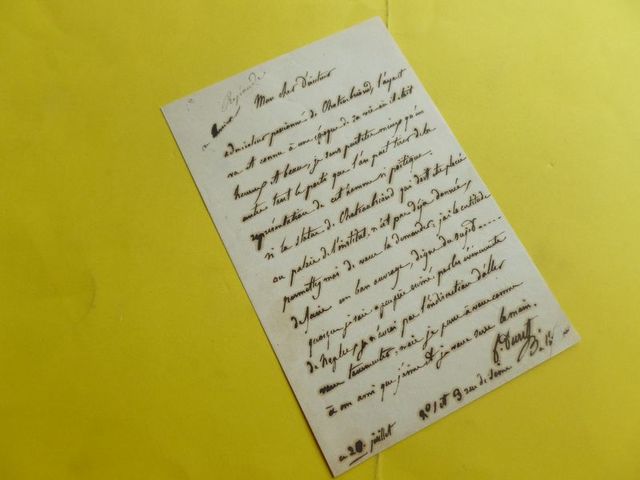 Répondu
Mon cher Directeur
admirateur passionné de Chateaubriand, l'ayant
vu et connu à une époque de sa vie où il était
heureux et beau, je sens peut-être mieux qu'un
autre tout le parti que l'on peut tirer de la
représentation de cet homme si poétique.
si la statue de Chateaubriand qui doit être placée
au palais de l'institut n'est pas déjà donnée,
permettez moi de vous la demander, j'ai la certitude
de faire un bon ouvrage, digne du sujet.....
quoique je sois
de Naples, je n'aurai pas l'indiscrétion d'aller
vous tourmenter, mais je pense à vous comme
à un ami que j'aime et je vous serre la main.
f. Duret
ce 29 juillet
n° 1 et 3 rue de Seine